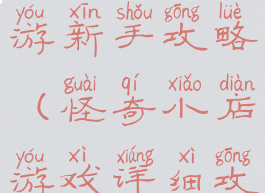 yóu xīn shǒu gōng lüè
游新手攻略
guài qí xiǎo diàn
（怪奇小店
yóu xì xiáng xì gōng
游戏详细攻